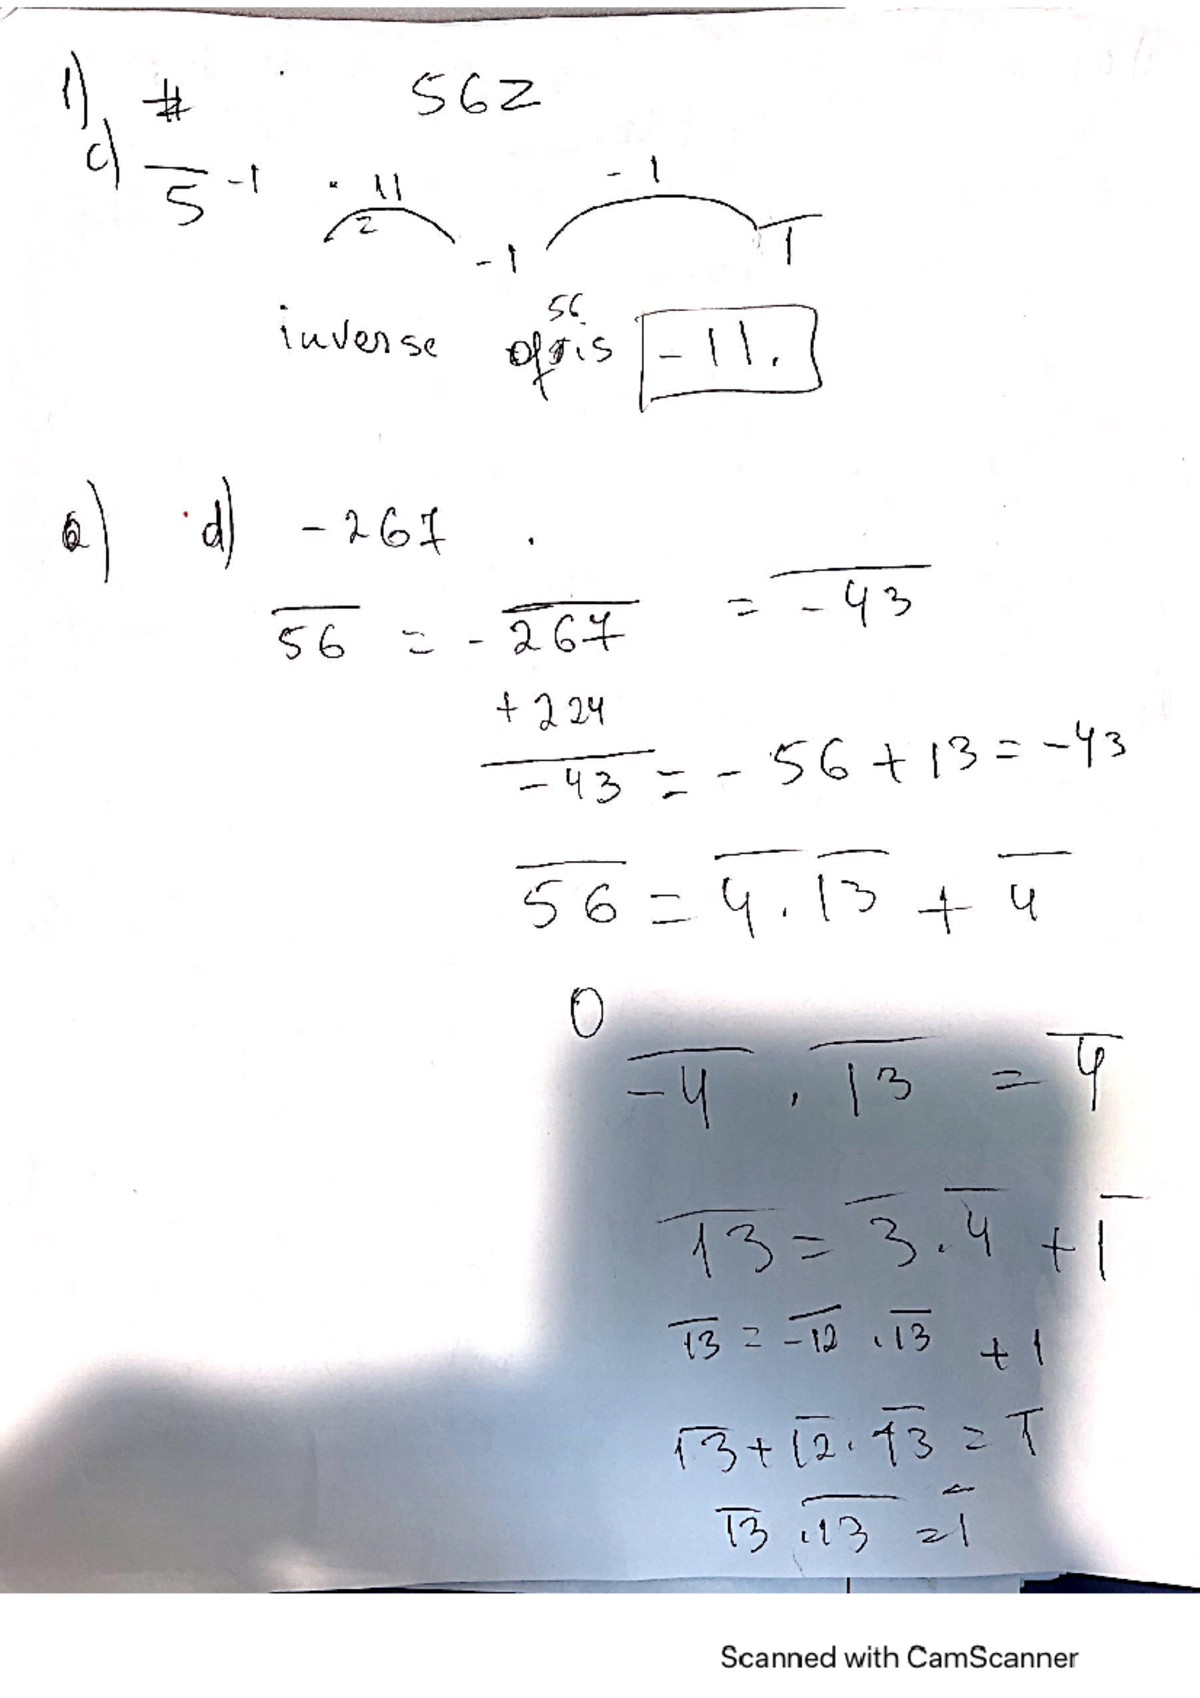 1) # 56Z
c) 5̅ -1 · 11 -1
2 -1 1̅
56
inverse of is -11.
a) d) -267 .
5̅6̅ = - 2̅6̅7̅ = -̅4̅3̅
+224
-43 = - 56 + 13 = -43
5̅6̅ = 4̅ . 1̅3̅ + 4̅
0
-̅4̅ . 1̅3̅ = 4̅
1̅3̅ = 3̅ . 4̅ + 1̅
1̅3̅ = -̅1̅2̅ . 1̅3̅ + 1
1̅3̅ + 1̅2̅ . 1̅3̅ = 1̅
1̅3̅ . 1̅3̅ = 1̅
Scanned with CamScanner